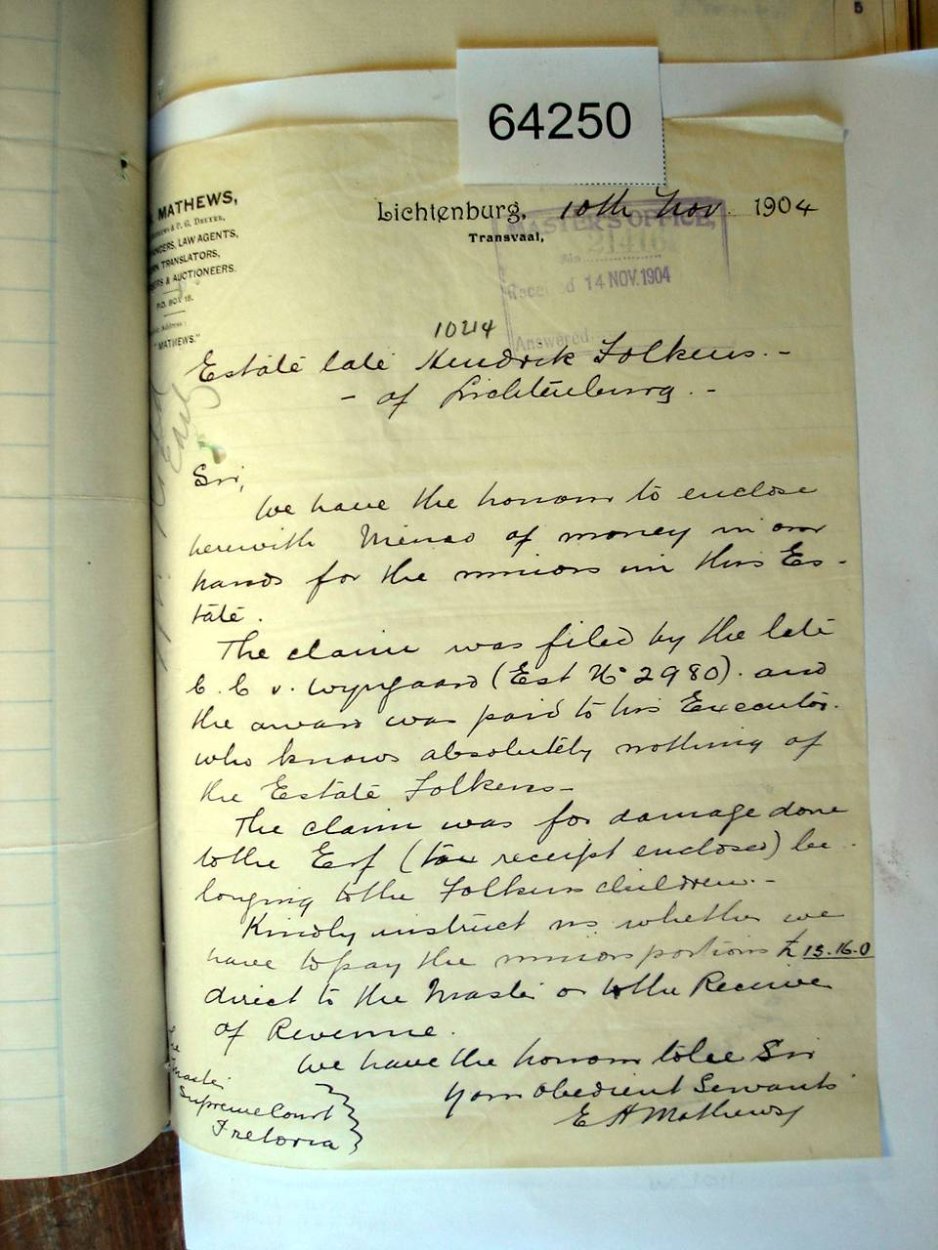 64250
MATHEWS,
& P. G. DREYER,
LAW AGENTS,
TRANSLATORS,
& AUCTIONEERS.
P.O. BOX 18.
Address:
"MATHEWS."
Lichtenburg, 10th Nov. 1904
Transvaal,
MASTER'S OFFICE,
No
Received 14 NOV. 1904
Answered
10214
Estate late Hendrik Folkens. -
- of Lichtenburg. -
Sir,
We have the honour to enclose
herewith Memo of money in our
hands for the minors in this Es-
tate.
The claim was filed by the late
C. C v. Wyngaard (Est No 2980). and
the award was paid to his Executor.
who knows absolutely nothing of
the Estate Folkens -
The claim was for damage done
to the Erf (tax receipt enclosed) be-
longing to the Folkens children. -
Kindly instruct us whether we
have to pay the minors portions £ 13.16.0
direct to the Master or to the Receiver
of Revenue.
We have the honour to be Sir
Your Obedient Servants
E H Mathews
The
Master
Supreme Court
Pretoria